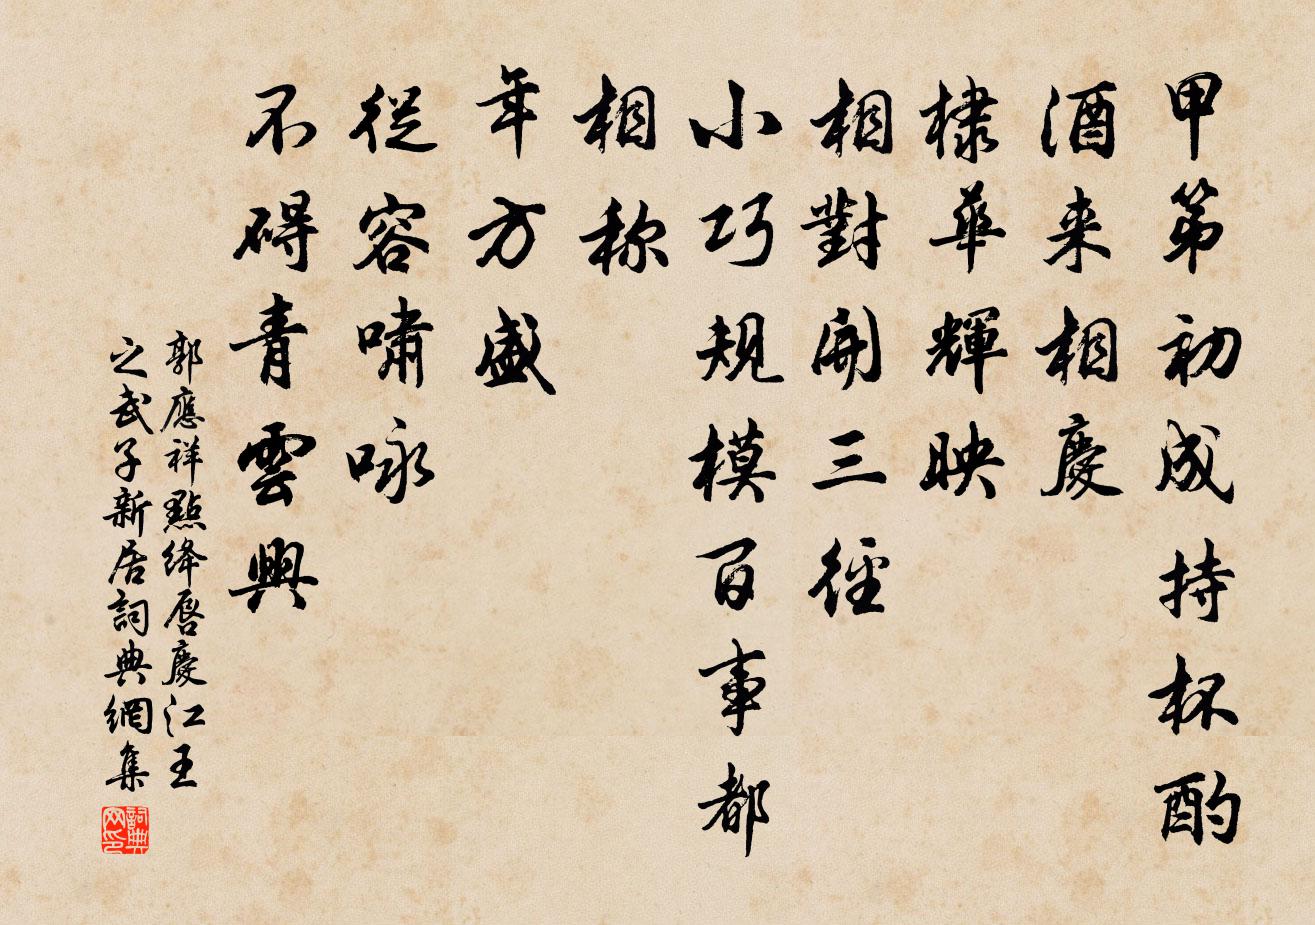 甲第初成持杯酌
酒来相慶
棣華輝映
相對開三徑
小巧規模百事都
相称
年方盛
從容嘯咏
不碍青雲興
郭應祥點絳唇慶江王
之武子新居詞典網集
詞典
网印